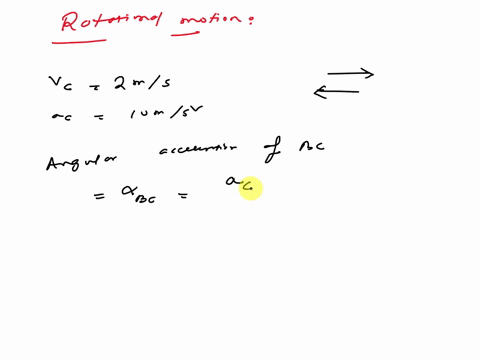 Rotational motion:
V_C = 2 m/s
a_C = 10 m/s²
Angular acceleration of BC
= α_BC = a_C